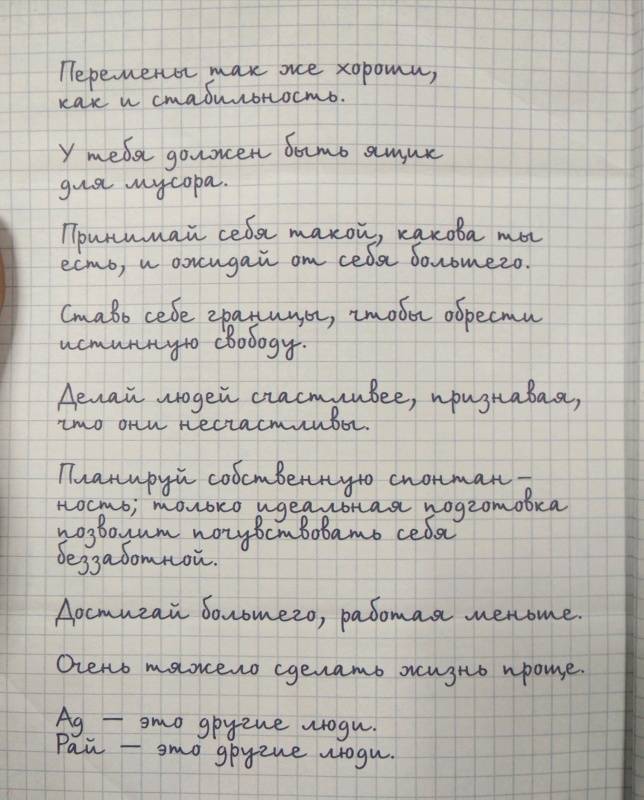 Перемены так же хороши,
как и стабильность.
У тебя должен быть ящик
для мусора.
Принимай себя такой, какова ты
есть, и ожидай от себя большего.
Ставь себе границы, чтобы обрести
истинную свободу.
Делай людей счастливее, признавая,
что они несчастливы.
Планируй собственную спонтан-
ность; только идеальная подготовка
позволит почувствовать себя
беззаботной.
Достигай большего, работая меньше.
Очень тяжело сделать жизнь проще.
Ад — это другие люди.
Рай — это другие люди.